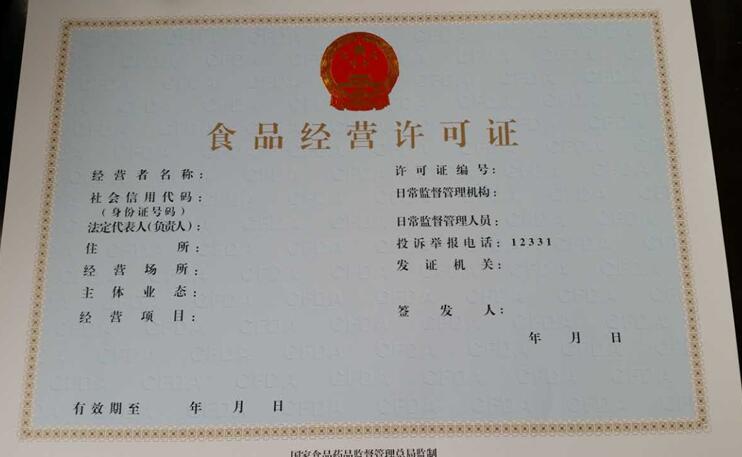 食品经营许可证
经营者名称：
社会信用代码：
（身份证号码）
法定代表人(负责人)：
住所：
经营场所：
主体业态：
经营项目：
有效期至 年 月 日
许可证编号：
日常监督管理机构：
日常监督管理人员：
投诉举报电话：12331
发证机关：
签发人：
年 月 日
国家食品药品监督管理总局监制
CFDA